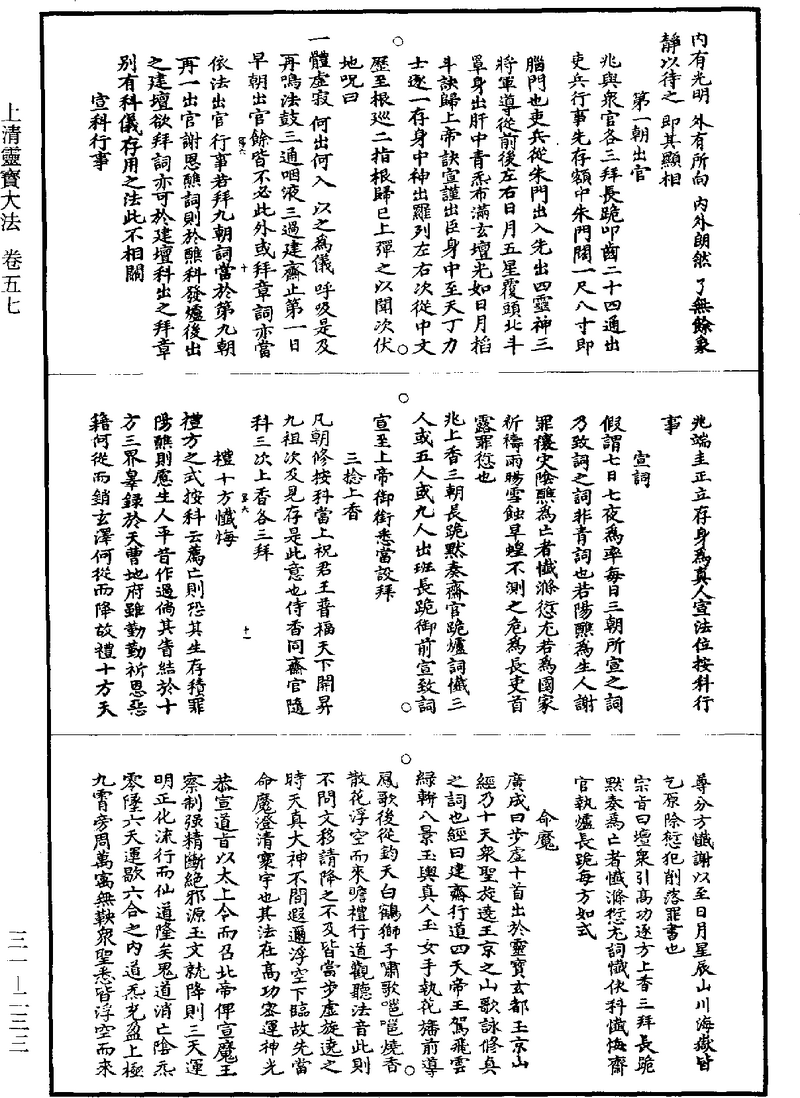 內有光明　外有所向　內外朗然　了無餘象
靜以待之　即其顯相
第一朝出官
兆與衆官各三拜長跪叩齒二十四通出
吏兵行事先存額中朱門闊一尺八寸即
腦門也吏兵從朱門出入先出四靈神三
將軍導從前後左右日月五星覆頭北斗
罩身出肝中青炁布滿玄壇光如日月掐
斗訣歸上帝訣宣謹出臣身中至天丁力
士逐一存身中神出羅列左右次從中文
歷至根巡二指根歸巳上彈之以聞次伏
地呪曰
一體虛寂　何出何入　以之爲儀　呼吸是及
再鳴法鼓三通咽液三過建齋止第一日
早朝出官餘皆不必此外或拜章詞亦當
依法出官行事若拜九朝詞當於第九朝
再一出官謝恩醮詞則於醮科發爐後出
之建壇欲拜詞亦可於建壇科出之拜章
別有科儀存用之法此不相關
宣科行事
兆端圭正立存身爲眞人宣法位按科行
事
宣詞
假謂七日七夜爲率每日三朝所宣之詞
乃致詞之詞非青詞也若陽醮爲生人謝
罪禳灾陰醮爲亡者懺滌愆尤若爲國家
祈禱雨暘雪蝕旱蝗不測之危爲長吏首
露罪愆也
兆上香三朝長跪默奏齋官跪爐詞懺三
人或五人或九人出班長跪御前宣致詞
宣至上帝御銜悉當設拜
三捻上香
凡朝修按科當上祝君王普福天下開昇
九祖次及見存是此意也侍香同齋官隨
科三次上香各三拜
禮十方懺悔
禮方之式按科云薦亡則恐其生存積罪
陽醮則慮生人平昔作過倘其咎結於十
方三界辠錄於天曹地府雖勤勤祈恩惡
籍何從而銷玄澤何從而降故禮十方天
尊分方懺謝以至日月星辰山川海嶽皆
乞原除愆犯削落罪書也
宗旨曰壇衆引高功逐方上香三拜長跪
默奏爲亡者懺滌愆尤詞懺伏科懺悔齋
官執爐長跪每方如式
命魔
廣成曰步虛十首出於靈寶玄都玉京山
經乃十天衆聖旋遶玉京之山歌詠修眞
之詞也經曰建齋行道四天帝王駕飛雲
綠軿八景玉輿眞人玉女手執花旛前導
鳳歌後從鈞天白鶴獅子嘯歌嗈嗈燒香
散花浮空而來瞻禮行道觀聽法音此則
不問文移請降之不及皆當步虛旋遶之
時天眞大神不問遐邇浮空下臨故先當
命魔澄清寰宇也其法在高功密運神光
恭宣道旨以太上令而召北帝俾宣魔王
察制强精斷絕邪源玉文就降則三天運
明正化流行而仙道隆矣鬼道消亡陰炁
零墜六天運歇六合之內道炁光盈上極
九霄旁周萬寓無鞅衆聖悉皆浮空而來
上清靈寶大法　卷五七
三一—二三二